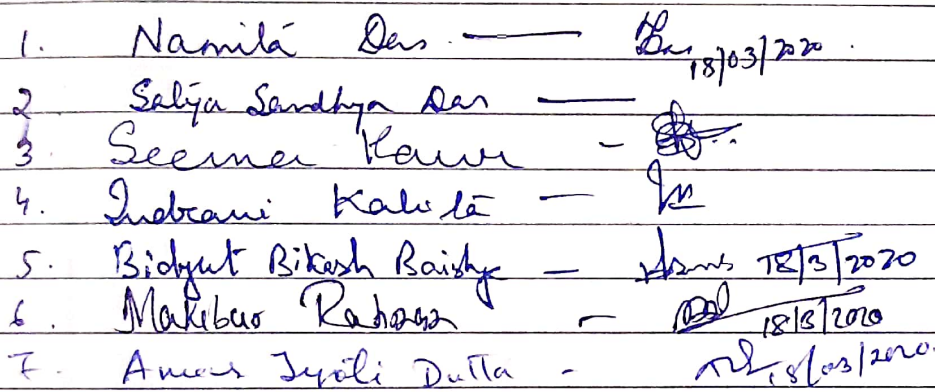 1. Namita Das — 18/03/2020.
2 Satya Sandhya Das —
3. Seema Kaur -
4. Indrani Kalita —
5. Bidyut Bikash Baishya — 18/3/2020
6. Makibur Rahman - 18/3/2020
7. Jyoti Dutta - 18/03/2020.